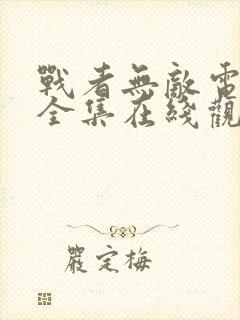 戰者無敵電
全集在綫觀
嚴定梅